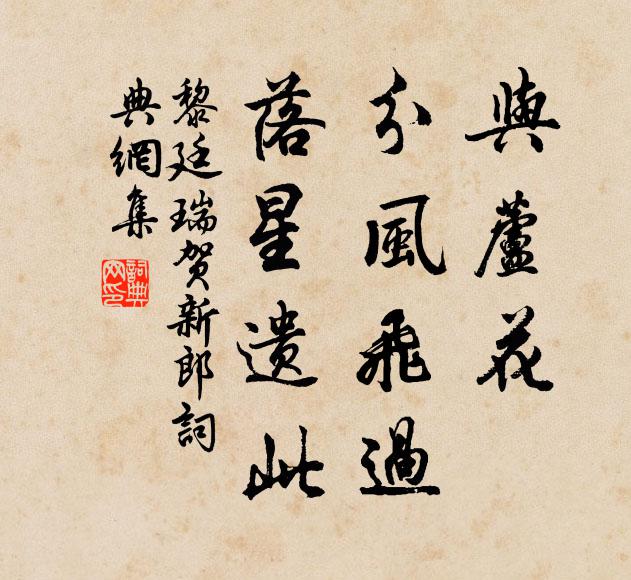 與蘆花
分風飛過
落星遺此
黎廷瑞賀新郎詞
典網集
詞典網印